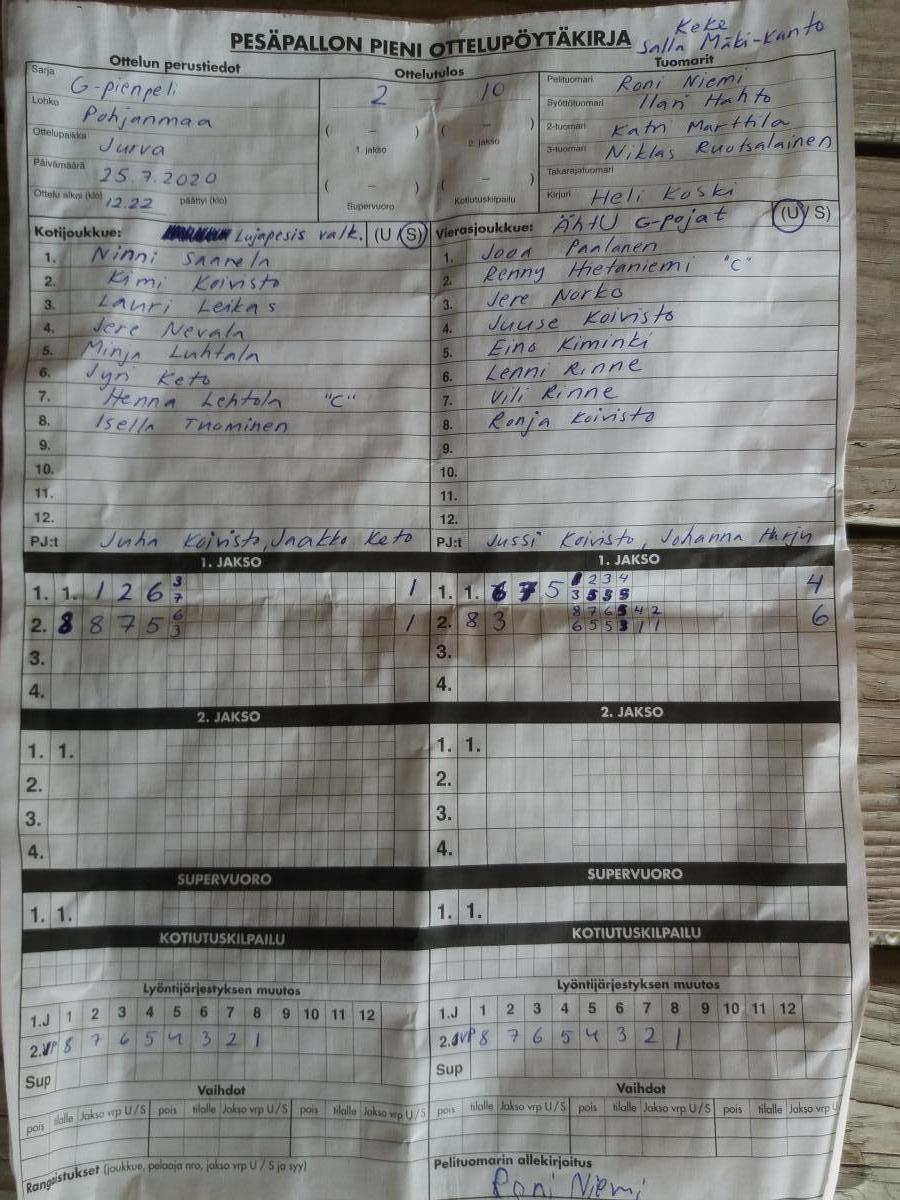 PESÄPALLON PIENI OTTELUPÖYTÄKIRJA
Keke
Salla Mäki-Kanto
Ottelun perustiedot
Ottelutulos
Tuomarit
Sarja G-pienpeli
Lohko Pohjanmaa
Ottelupaikka Jurva
Päivämäärä 25.7.2020
Ottelu alkoi (klo) 12.22 päättyi (klo)
2 - 10
( – ) ( – )
1. jakso 2. jakso
( – ) ( – )
Supervuoro Kotiutuskilpailu
Pelituomari Roni Niemi
Syöttötuomari Ilari Hahto
2-tuomari Katri Marttila
3-tuomari Niklas Ruotsalainen
Takarajatuomari
Kirjuri Heli Koski
Kotijoukkue: Lujapesis valk. (U S)
1. Ninni Saarela
2. Kimi Koivisto
3. Lauri Leikas
4. Jere Nevala
5. Minja Luhtala
6. Jyri Keto
7. Henna Lehtola "C"
8. Isella Tuominen
9.
10.
11.
12.
PJ:t Juha Koivisto, Jaakko Keto
Vierasjoukkue: ÄhtU G-pojat (U S)
1. Joona Paalanen
2. Renny Hietaniemi "C"
3. Jere Norko
4. Juuse Koivisto
5. Eino Kiminki
6. Lenni Rinne
7. Vili Rinne
8. Ronja Koivisto
9.
10.
11.
12.
PJ:t Jussi Koivisto, Johanna Harju
1. JAKSO
1. 1. 1 2 6 3 1
7
2. 8 8 7 5 6 1
3
3.
4.
1. JAKSO
1. 1. 6 7 5 1 2 3 4 4
3 5 5 5
2. 8 3 8 7 6 5 4 2 6
6 5 5 3 1 1
3.
4.
2. JAKSO
1. 1.
2.
3.
4.
2. JAKSO
1. 1.
2.
3.
4.
SUPERVUORO
1. 1.
SUPERVUORO
1. 1.
KOTIUTUSKILPAILU
KOTIUTUSKILPAILU
Lyöntijärjestyksen muutos
1.J 1 2 3 4 5 6 7 8 9 10 11 12
2.VP 8 7 6 5 4 3 2 1
Sup
Lyöntijärjestyksen muutos
1.J 1 2 3 4 5 6 7 8 9 10 11 12
2.VP 8 7 6 5 4 3 2 1
Sup
Vaihdot
pois tilalle Jakso vrp U / S pois tilalle Jakso vrp U / S pois tilalle Jakso vrp U / S
Vaihdot
pois tilalle Jakso vrp U / S pois tilalle Jakso vrp U / S pois tilalle Jakso vrp U
Rangaistukset (joukkue, pelaaja nro, jakso vrp U / S ja syy)
Pelituomarin allekirjoitus
Roni Niemi